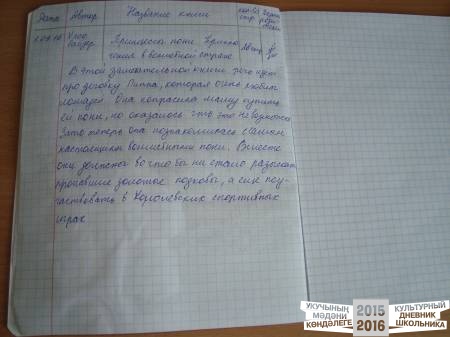 Дата Автор Название книги
Принцессы пони. Приклю
чения в волшебной стране
В этой замечательной книге речь идёт
про девочку Пиппа, которая очень любит
лошадей. Она попросила маму купить
ей пони, но оказалось что это не возможно
Зато теперь она познакомилась с самым
настоящими волшебными пони. Вместе
они должны во что бы ни стало разыскать
пропавшие золотые подковы, а ещё поу-
частвовать в Королевских спортивных
играх
УКУЧЫНЫҢ
МӘДӘНИ
КӨНДӘЛЕГЕ
2015
2016
КУЛЬТУРНЫЙ
ДНЕВНИК
ШКОЛЬНИКА